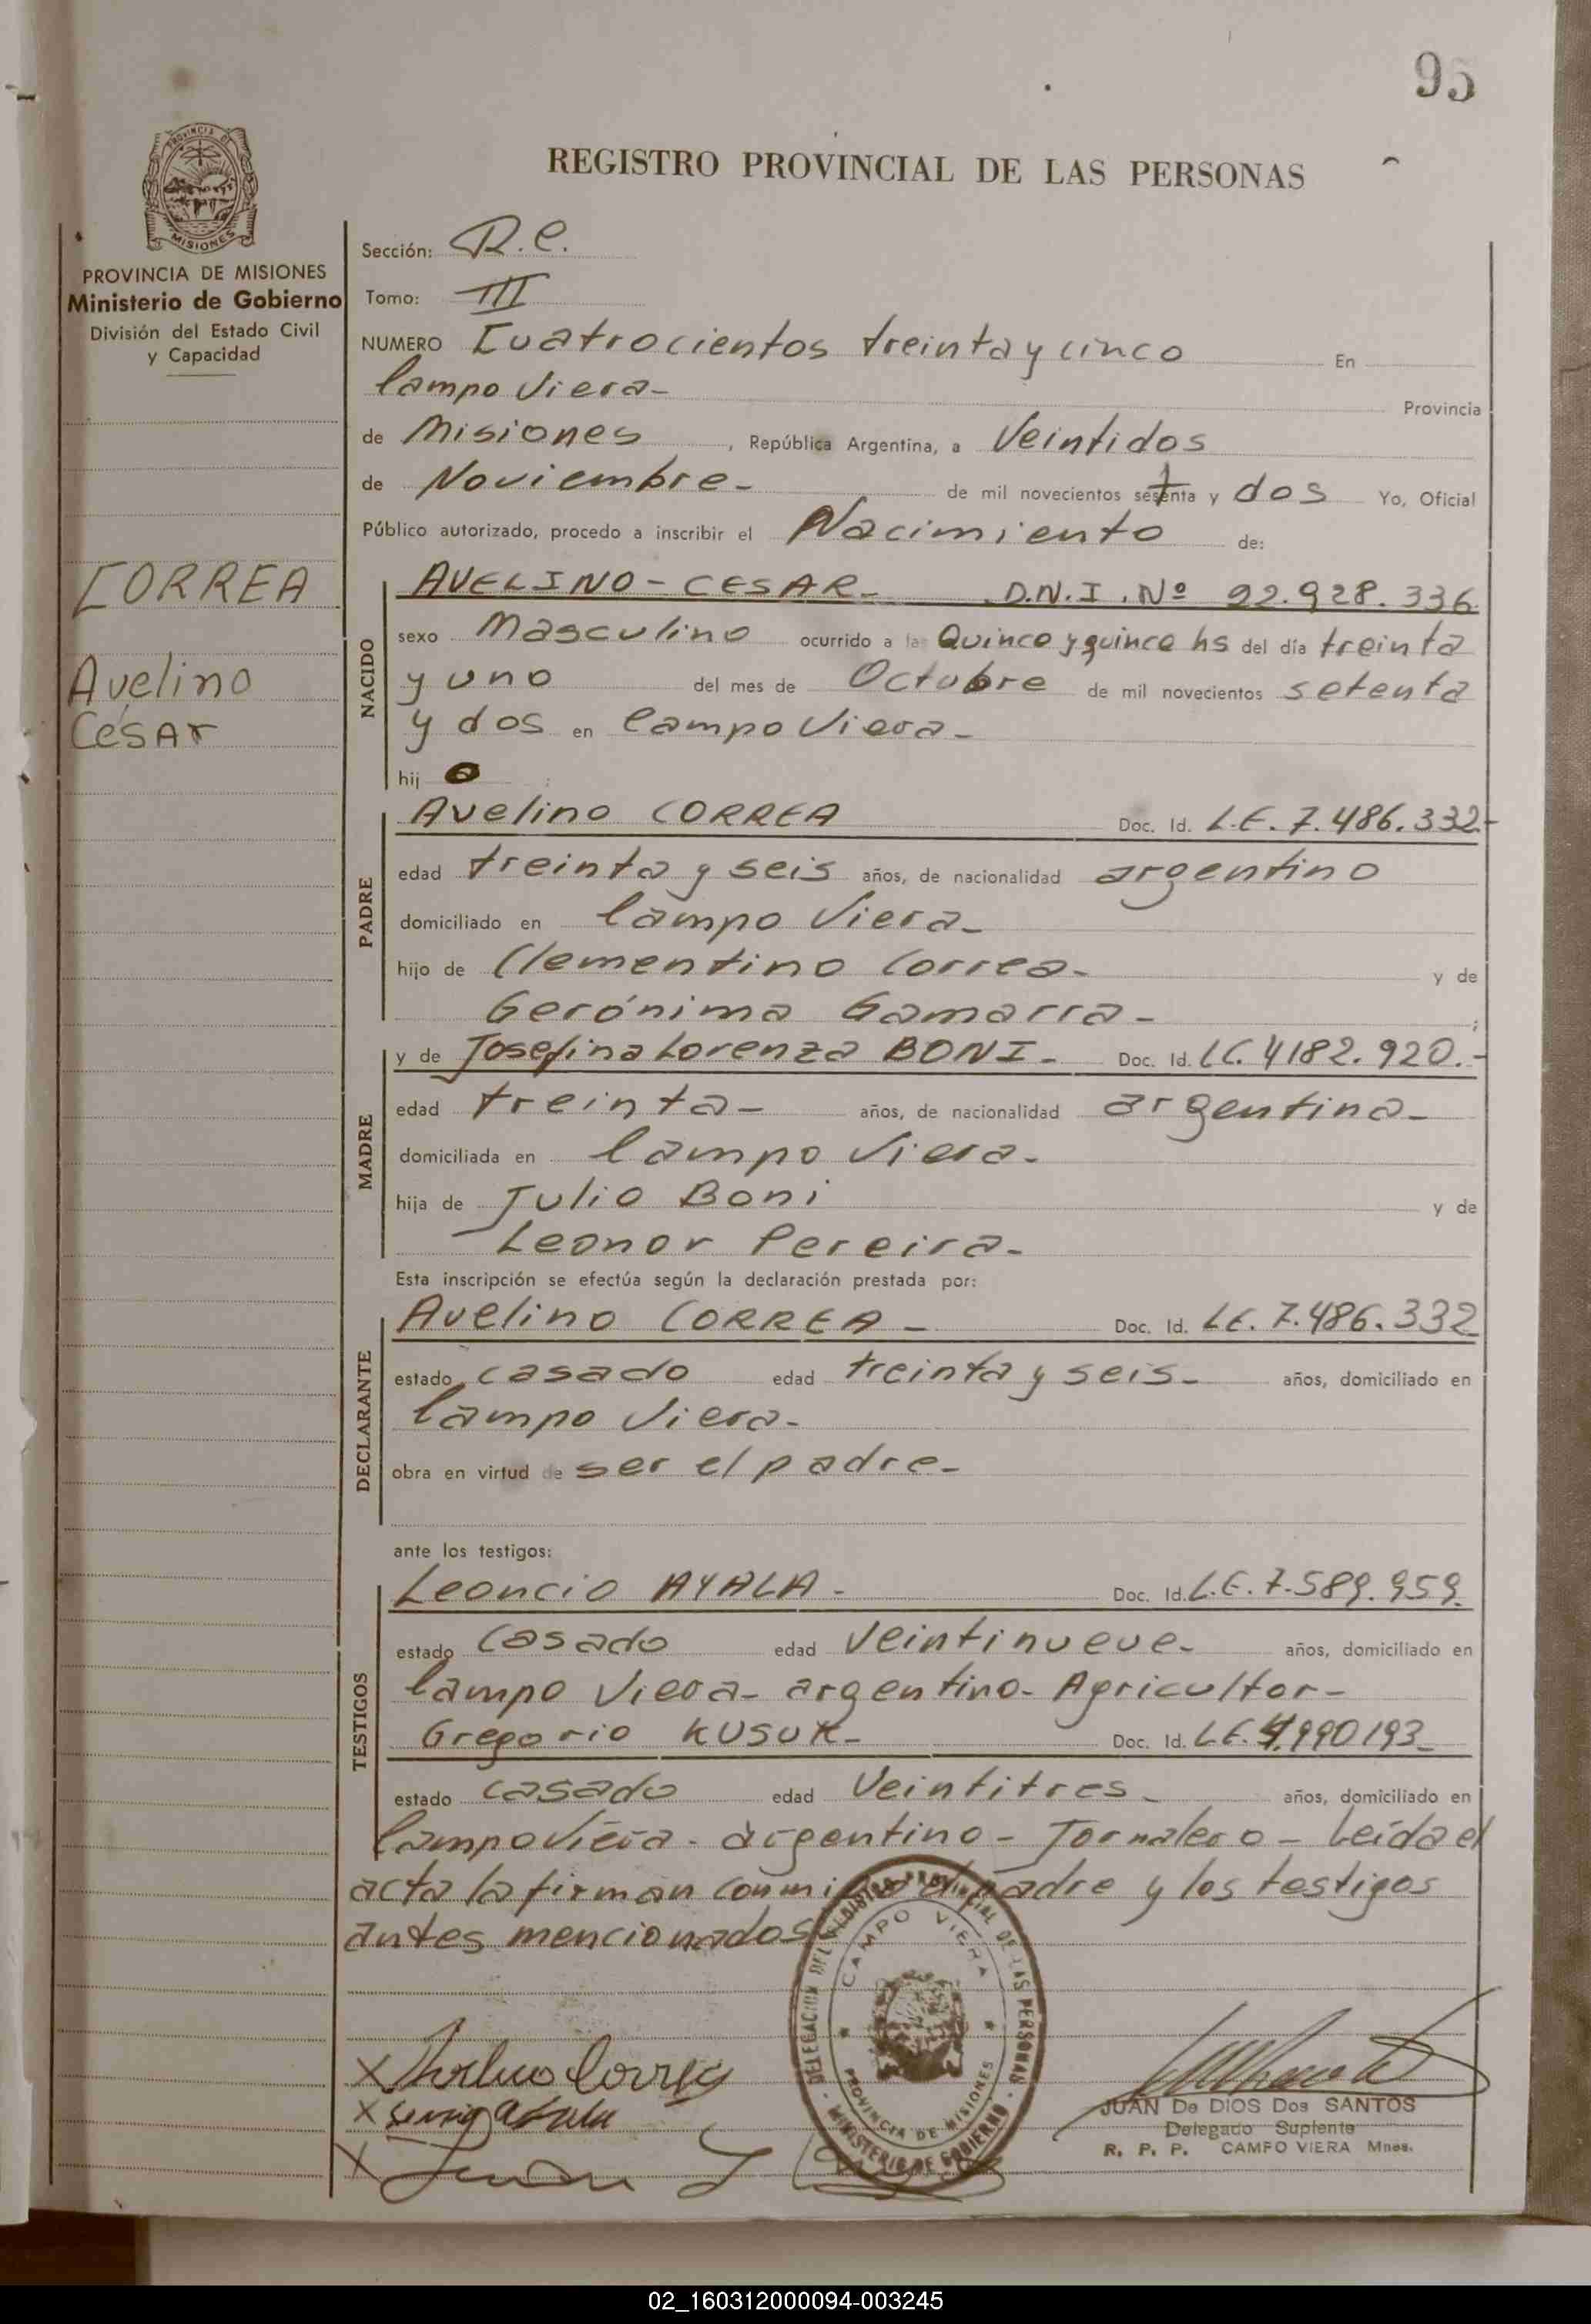 95
REGISTRO PROVINCIAL DE LAS PERSONAS
PROVINCIA DE MISIONES
Ministerio de Gobierno
División del Estado Civil
y Capacidad
CORREA
Avelino
César
Sección: R.C.
Tomo: III
NUMERO Cuatrocientos treinta y cinco En
Campo Viera-
Provincia
de Misiones, República Argentina, a Veintidos
de Noviembre- de mil novecientos setenta y dos Yo, Oficial
Público autorizado, procedo a inscribir el Nacimiento de:
NACIDO
AVELINO-CESAR- D.N.I. Nº 22.928.336
sexo Masculino ocurrido a las Quince y quince hs del día treinta
y uno del mes de Octubre de mil novecientos setenta
y dos en Campo Viera-
hij o
PADRE
Avelino CORREA Doc. Id. L.E. 7.486.332.-
edad treinta y seis años, de nacionalidad argentino
domiciliado en Campo Viera-
hijo de Clementino Correa- y de
Gerónima Gamarra- ;
MADRE
y de Josefina Lorenza BONI- Doc. Id. LC. 4182.920.-
edad treinta- años, de nacionalidad argentina-
domiciliada en Campo Viera-
hija de Julio Boni y de
Leonor Pereira-
Esta inscripción se efectúa según la declaración prestada por:
DECLARANTE
Avelino CORREA- Doc. Id. LE. 7.486.332
estado casado edad treinta y seis- años, domiciliado en
Campo Viera-
obra en virtud de ser el padre-
ante los testigos:
TESTIGOS
Leoncio AYALA- Doc. Id. L.E. 7.589.959.
estado Casado edad Veintinueve- años, domiciliado en
Campo Viera- argentino- Agricultor-
Gregorio KUSUK- Doc. Id. LE. 990193-
estado casado edad Veintitres- años, domiciliado en
Campo Viera- argentino- Jornalero- Leída el
acta la firman conmigo el padre y los testigos
antes mencionados
DELEGACION DEL REGISTRO PROVINCIAL DE LAS PERSONAS
CAMPO VIERA
PROVINCIA DE MISIONES
MINISTERIO DE GOBIERNO
X Avelino Correa
X
X
JUAN De DIOS Dos SANTOS
Delegado Suplente
R. P. P. CAMPO VIERA Mnes.
02_160312000094-003245